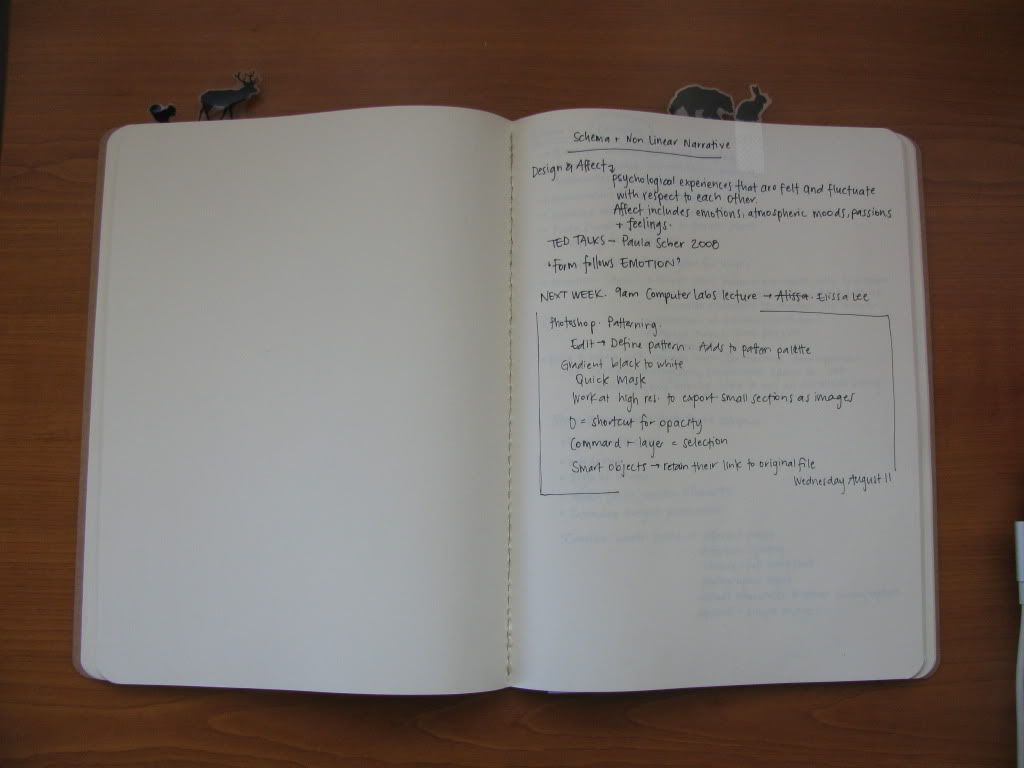 Schema + Non Linear Narrative
Design & Affect →
psychological experiences that are felt and fluctuate
with respect to each other.
Affect includes emotions, atmospheric moods, passions
+ feelings.
TED TALKS – Paula Scher 2008
'Form follows EMOTION'
NEXT WEEK. 9am Computer Labs lecture → Alissa. Elissa Lee
Photoshop. Patterning.
Edit → Define pattern. Adds to pattern palette
Gradient black to white
Quick Mask
Work at high res. to export small sections as images
0 = shortcut for opacity
Command + layer = selection
Smart objects → retain their link to original file
Wednesday August 11